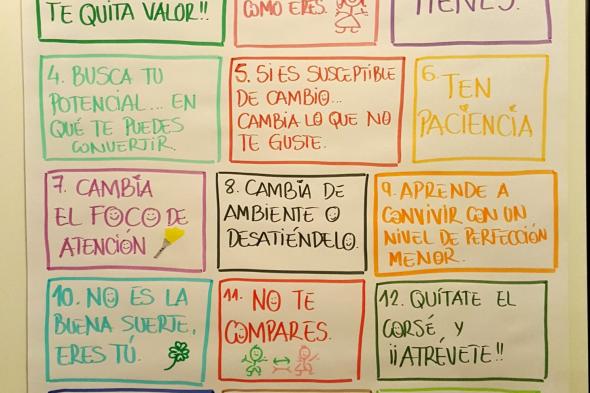 TE QUITA VALOR!!
COMO ERES.
TIENES.
4. BUSCA TU
POTENCIAL... EN
QUÉ TE PUEDES
CONVERTIR.
5. SI ES SUSCEPTIBLE
DE CAMBIO...
CAMBIA LO QUE NO
TE GUSTE.
6. TEN
PACIENCIA
7. CAMBIA
EL FOCO DE
ATENCIÓN
8. CAMBÍA DE
AMBIENTE O
DESATIÉNDELO.
9. APRENDE A
CONVIVIR CON UN
NIVEL DE PERFECCIÓN
MENOR.
10. NO ES LA
BUENA SUERTE,
ERES TÚ.
11. NO TE
COMPARES.
12. QUÍTATE EL
CORSÉ Y
¡¡ATRÉVETE!!